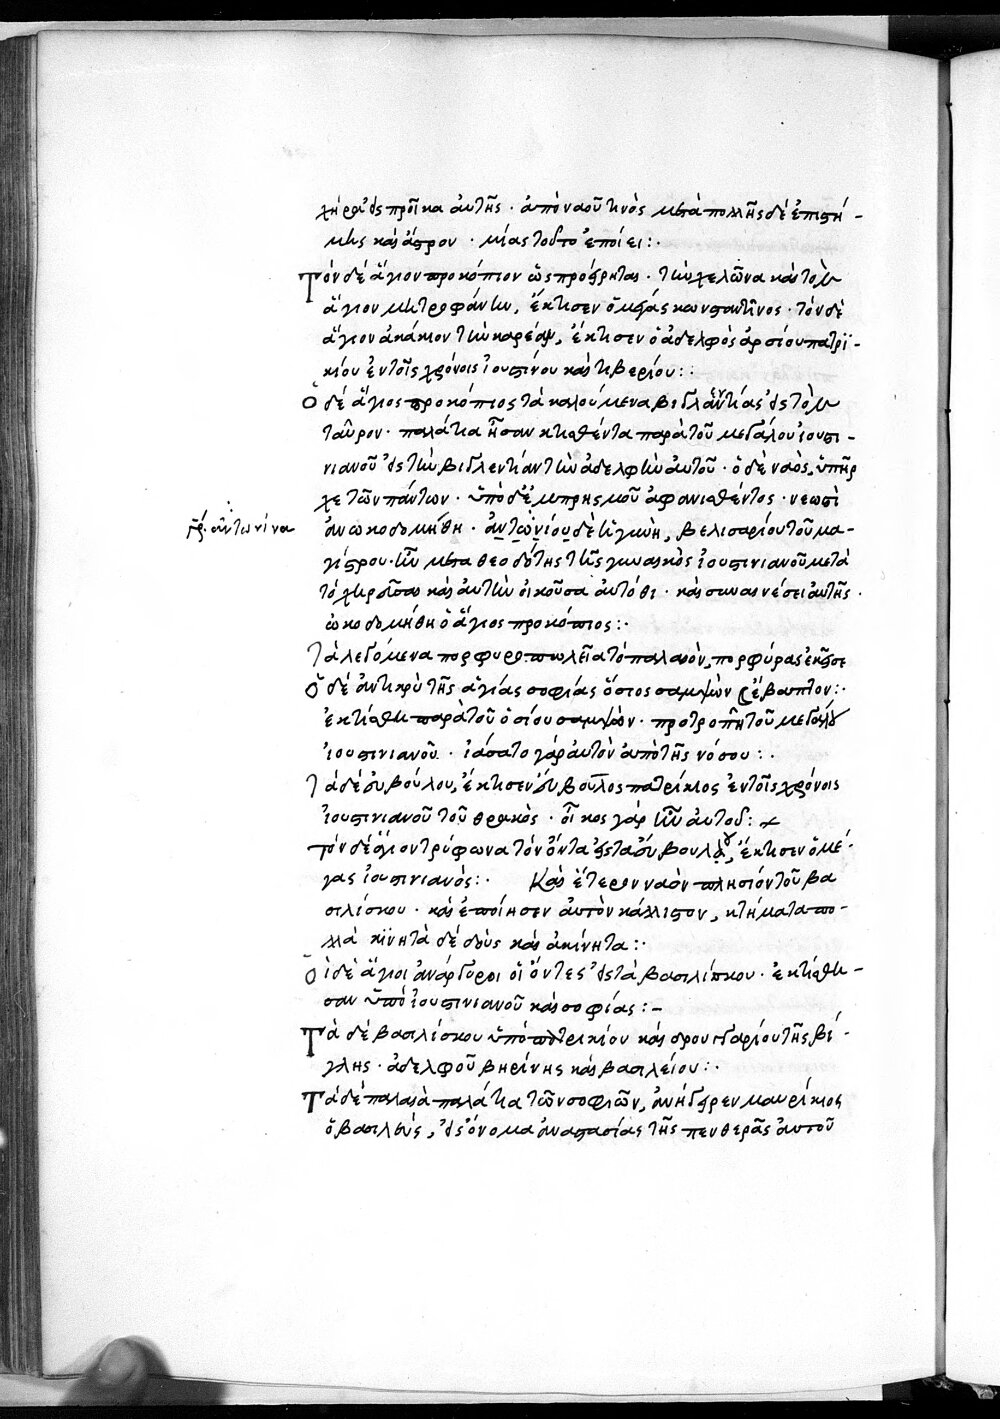 χήρα εἰς προῖκα αὐτῆς · ἀπὸ ναοῦ τινὸς μετὰ πολλῆς δὲ ἐπιστή-
μης καὶ ἄστρον · μίας τοῦτο ἐποίει :·
Τὸν δὲ ἅγιον προκόπιον ὡς προείρηται · τὴν χελῶνα καὶ τὸν
ἅγιον μητροφάνην, ἔκτισεν ὁ μέγας κωνσταντῖνος · τὸν δὲ
ἅγιον ἀκάκιον τὴν καρέαν, ἔκτισεν ὁ ἀδελφὸς ἀρσίου πατρι-
κίου ἐν τοῖς χρόνοις ἰουστίνου καὶ τιβερίου :·
Ὁ δὲ ἅγιος προκόπιος τὰ καλούμενα βιγλαντίας εἰς τὸν
ταῦρον · παλάτια ἦσαν κτισθέντα παρὰ τοῦ μεγάλου ἰουστι-
νιανοῦ εἰς τὴν βιγλεντίαν τὴν ἀδελφὴν αὐτοῦ · ὁ δὲ ναὸς, ὑπῆρ
χε τῶν πάντων · ὑπὸ δὲ ἐμπρησμοῦ ἀφανισθέντος · νεωστὶ
ἀνωκοδομήθη · ἀντωνίου δὲ ἡ γυνὴ, βελισαρίου τοῦ μα-
γίστρου · ἦν μετὰ θεοδότης τῆς γυναικὸς ἰουστινιανοῦ μετὰ
τὸ χηρεῦσαι καὶ αὐτὴν οἰκοῦσα αὐτόθι · καὶ συναινέσει αὐτῆς ·
ὠκοδομήθη ὁ ἅγιος προκόπιος :·
Τὰ λεγόμενα πορφυροπωλεῖα τὸ παλαιὸν, πορφύρας ἐκεῖσε
ἔβαπτον :·
Ὁ δὲ ἀντικρὺ τῆς ἁγίας σοφίας ὅσιος σαμψὼν
ἐκτίσθη παρὰ τοῦ ὁσίου σαμψὼν · προτροπῆ τοῦ μεγάλου
ἰουστινιανοῦ · ἰάσατο γὰρ αὐτὸν ἀπὸ τῆς νόσου :·
Τὰ δὲ εὐβούλου, ἔκτισεν εὔβουλος πατρίκιος ἐν τοῖς χρόνοις
ἰουστινιανοῦ τοῦ θρακὸς · οἶκος γὰρ ἦν αὐτοῦ :
τὸν δὲ ἅγιον τρύφωνα τὸν ὄντα εἰς τὰ εὐβούλου, ἔκτισεν ὁ μέ-
γας ἰουστινιανός :· Καὶ ἕτερον ναὸν πλησίον τοῦ βα
σιλίσκου · καὶ ἐποίησεν αὐτὸν κάλλιστον, κτήματα πο-
λλὰ κινητὰ δέδους καὶ ἀκίνητα :·
Οἱ δὲ ἅγιοι ἀνάργυροι οἱ ὄντες εἰς τὰ βασιλίσκου · ἐκτίσθη-
σαν ὑπὸ ἰουστινιανοῦ καὶ σοφίας :-
Τὰ δὲ βασιλίσκου ὑπὸ πατρικίου καὶ δρουγγαρίου τῆς βί-
γλης · ἀδελφοῦ βηρίνης καὶ βασιλείου :·
Τὰ δὲ παλαιὰ παλάτια τῶν σοφιῶν, ἀνήγειρεν μαυρίκιος
ὁ βασιλεὺς, εἰς ὄνομα ἀναστασίας τῆς πενθερᾶς αὐτοῦ
γρ. ἀντωνίνα